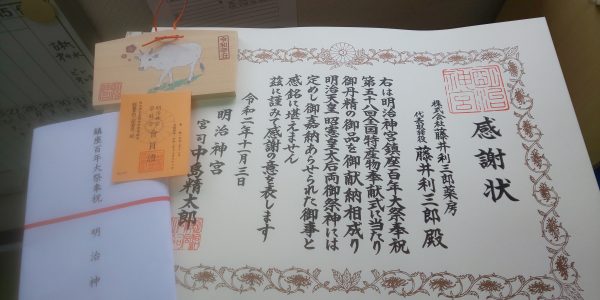 感謝状
株式会社藤井利三郎薬房
代表取締役 藤井利三郎殿
右は明治神宮鎮座百年大祭奉祝
第五十八回全国特産物奉献式に当たり
御丹精の御品を御献納相成り
明治天皇昭憲皇太后両御祭神には
定めし御嘉納あらせられた御事と
感銘に堪えません
茲に謹みて感謝の意を表します
令和二年十一月三日
明治神宮
宮司 中島精太郎
鎮座百年大祭奉祝
明治神